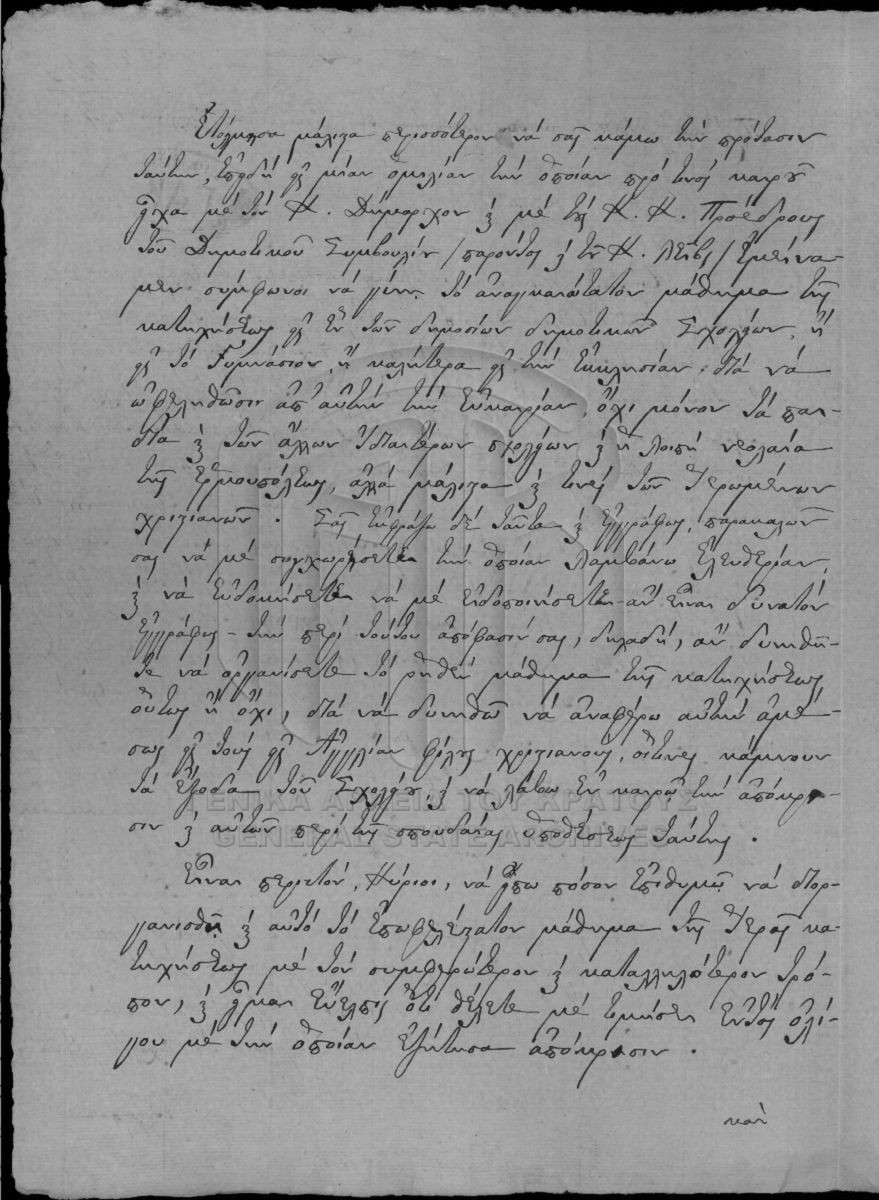 Ἐτόλμησα μάλιστα περισσότερον νά σᾶς κάμω τήν πρότασιν
ταύτην, ἐπειδή εἰς μίαν ὁμιλίαν τήν ὁποίαν πρό τινος καιροῦ
εἶχα μέ τόν Κ. Δήμαρχον καί μέ τούς Κ. Κ. Προέδρους
τοῦ Δημοτικοῦ Συμβουλίου /παρόντος καί τοῦ Κ. / ἐμείνα-
μεν σύμφωνοι νά γίνῃ τό ἀναγκαιότατον μάθημα τῆς
κατηχήσεως εἰς ἕν τῶν δημοσίων δημοτικῶν Σχολείων, ἤ
εἰς τό Γυμνάσιον, ἤ καλήτερα εἰς τήν ἐκκλησίαν· διά νά
ὠφεληθῶσιν ἀπ' αὐτήν τήν εὐκαιρίαν, ὄχι μόνον τά παι-
διά καί τῶν ἄλλων ἰδιαιτέρων σχολείων καί ἡ λοιπή νεολαία
τῆς Ἑρμουπόλεως, ἀλλά μάλιστα καί τινες τῶν Ἱερωμένων
χριστιανῶν. Σᾶς ἐκφράζω δέ ταῦτα καί ἐγγράφως, παρακαλῶν
σας νά μέ συγχωρήσετε τήν ὁποίαν λαμβάνω ἐλευθερίαν,
καί νά εὐδοκήσετε νά μέ εἰδοποιήσετε - ἄν εἶναι δυνατόν
ἐγγράφως - τήν περί τούτου ἀπόφασίν σας, δηλαδή, ἄν δυνηθῆ-
τε νά ὀργανίσετε τό ῥηθέν μάθημα τῆς κατηχήσεως
οὕτως ἤ ὄχι, διά νά δυνηθῶ νά ἀναφέρω αὐτήν ἀμέ-
σως εἰς τούς εἰς Ἀγγλίαν φίλους χριστιανούς, οἵτινες κάμνουν
τά ἔξοδα τοῦ Σχολείου, καί νά λάβω ἐν καιρῷ τήν ἀπόκρι-
σιν καί αὐτῶν περί τῆς σπουδαίας ὑποθέσεως ταύτης.
Εἶναι περιττόν, Κύριοι, νά εἴπω πόσον ἐπιθυμῶ νά διορ-
γανισθῇ καί αὐτό τό ἐπωφελέστατον μάθημα τῆς Ἱερᾶς κα-
τηχήσεως μέ τόν συμφερώτερον καί καταλληλότερον τρό-
πον, καί εἶμαι εὔελπις ὅτι θέλετε μέ τιμήσει ἐντός ὀλί-
γου μέ τήν ὁποίαν ἐζήτησα ἀπόκρισιν.
καὶ
ΓΕΝΙΚΑ ΑΡΧΕΙΑ ΤΟΥ ΚΡΑΤΟΥΣ
GENERAL STATE ARCHIVES